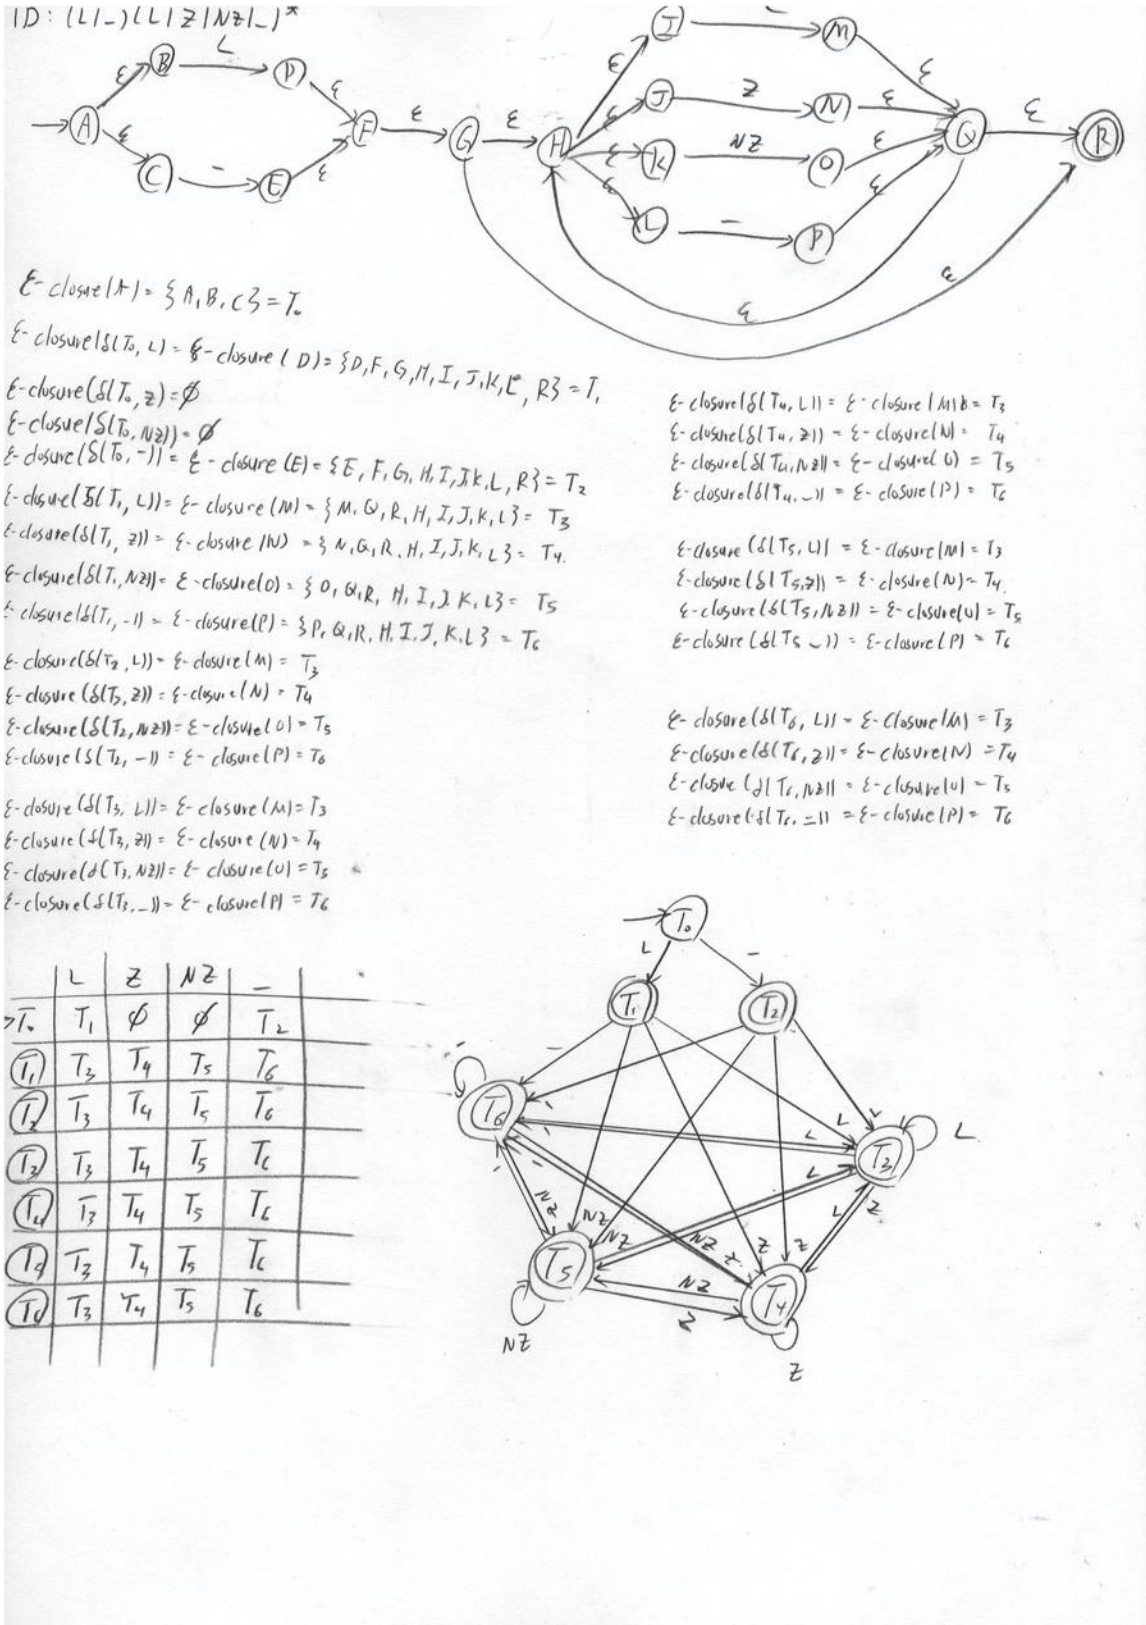 ID: (L|_)(L|Z|NZ|_)*
A ε B L D ε
ε C _ E ε F ε G ε H
ε I M ε
ε J Z N ε
ε K NZ O ε
ε L _ P ε
Q ε R
ε
ε
ε-closure(A) = {A, B, C} = T0
ε-closure(δ(T0, L) = ε-closure(D) = {D, F, G, H, I, J, K, L, R} = T1
ε-closure(δ(T0, Z) = ∅
ε-closue(δ(T0, NZ)) = ∅
ε-closure(δ(T0, -)) = ε-closure(E) = {E, F, G, H, I, J, K, L, R} = T2
ε-closure(δ(T1, L)) = ε-closure(M) = {M, Q, R, H, I, J, K, L} = T3
ε-closure(δ(T1, Z)) = ε-closure(N) = {N, Q, R, H, I, J, K, L} = T4
ε-closure(δ(T1, NZ)) = ε-closure(O) = {O, Q, R, H, I, J, K, L} = T5
ε-closure(δ(T1, -)) = ε-closure(P) = {P, Q, R, H, I, J, K, L} = T6
ε-closure(δ(T2, L)) = ε-closure(M) = T3
ε-closure(δ(T2, Z)) = ε-closure(N) = T4
ε-closure(δ(T2, NZ)) = ε-closure(O) = T5
ε-closure(δ(T2, -)) = ε-closure(P) = T6
ε-closure(δ(T3, L)) = ε-closure(M) = T3
ε-closure(δ(T3, Z)) = ε-closure(N) = T4
ε-closure(δ(T3, NZ)) = ε-closure(O) = T5
ε-closure(δ(T3, _)) = ε-closure(P) = T6
ε-closure(δ(T4, L)) = ε-closure(M) = T3
ε-closure(δ(T4, Z)) = ε-closure(N) = T4
ε-closure(δ(T4, NZ)) = ε-closure(O) = T5
ε-closure(δ(T4, _)) = ε-closure(P) = T6
ε-closure(δ(T5, L)) = ε-closure(M) = T3
ε-closure(δ(T5, Z)) = ε-closure(N) = T4
ε-closure(δ(T5, NZ)) = ε-closure(O) = T5
ε-closure(δ(T5 _)) = ε-closure(P) = T6
ε-closure(δ(T6, L)) = ε-closure(M) = T3
ε-closure(δ(T6, Z)) = ε-closure(N) = T4
ε-closure(δ(T6, NZ)) = ε-closure(O) = T5
ε-closure(δ(T6, _)) = ε-closure(P) = T6
L Z NZ _
T0 T1 ∅ ∅ T2
T1 T3 T4 T5 T6
T2 T3 T4 T5 T6
T3 T3 T4 T5 T6
T4 T3 T4 T5 T6
T5 T3 T4 T5 T6
T6 T3 T4 T5 T6
T0
L -
T1 T2
T6 L L L T3 L
NZ NZ NZ NZ Z Z Z L L Z
T5 NZ Z T4
NZ Z